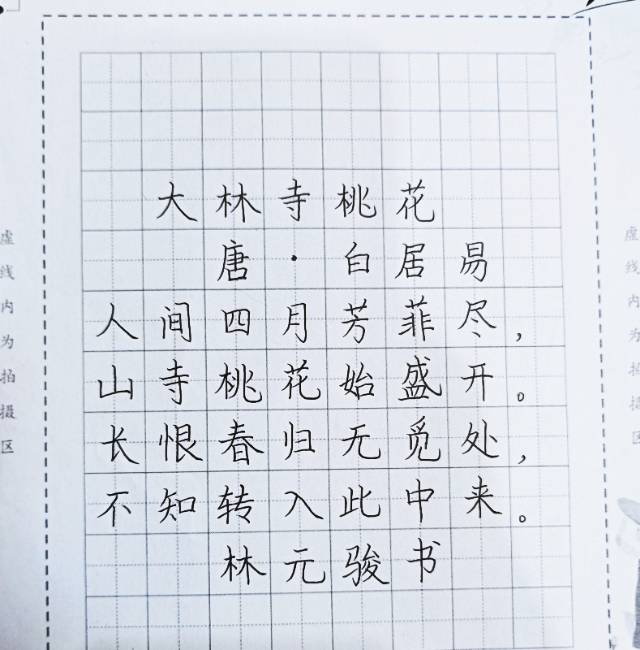 大林寺桃花
唐·白居易
人间四月芳菲尽，
山寺桃花始盛开。
长恨春归无觅处，
不知转入此中来。
林元骏书
虚线内为拍摄区
虚线内为拍摄区